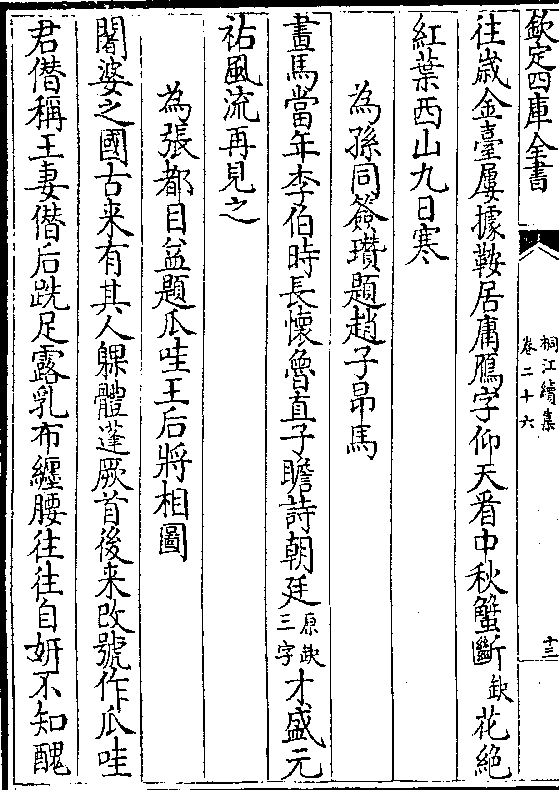 欽定四庫全書
桐江續集
卷二十六
十三
往歳金臺屢據鞍居庸鴈字仰天看中秋蟹斷缺花絶
紅葉西山九日寒
為孫同簽瓚題趙子昻馬
畫馬當年李伯時長懷魯直子瞻詩朝廷原缺三字才盛元
祐風流再見之
為張都目益題瓜哇王后將相圖
闍婆之國古来有其人躶體蓬厥首後来改號作瓜哇
君僭稱王妻僭后跣足露乳布纏腰往往自妍不知醜